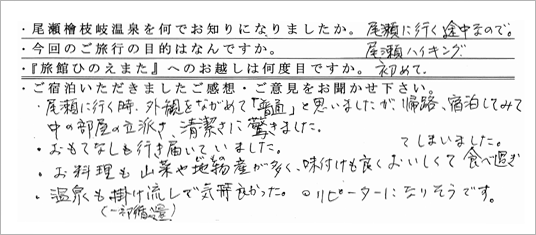 ・尾瀬檜枝岐温泉を何でお知りになりましたか。尾瀬に行く途中なので。
・今回のご旅行の目的はなんですか。尾瀬ハイキング
・『旅館ひのえまた』へのお越しは何度目ですか。初めて。
・ご宿泊いただきましたご感想・ご意見をお聞かせ下さい。
・尾瀬に行く時、外観をながめて「普通」と思いましたが、帰路、宿泊してみて
中の部屋の立派さ、清潔さに驚きました。
・おもてなしも行き届いていました。
・お料理も山菜や地物産が多く、味付けも良くおいしくて食べ過ぎ
てしまいました。
・温泉も掛け流しで気持良かった。○リピーターになりそうです。
(一部循環)